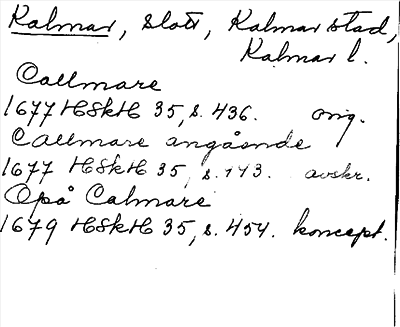 Kalmar, Slott, Kalmar stad,
Kalmar l.
Callmare
1677 HSkH 35, s. 436. orig.
Callmare angående
1677 HSkH 35, s. 143. avskr.
Opå Calmare
1679 HSkH 35, s. 454. koncept.